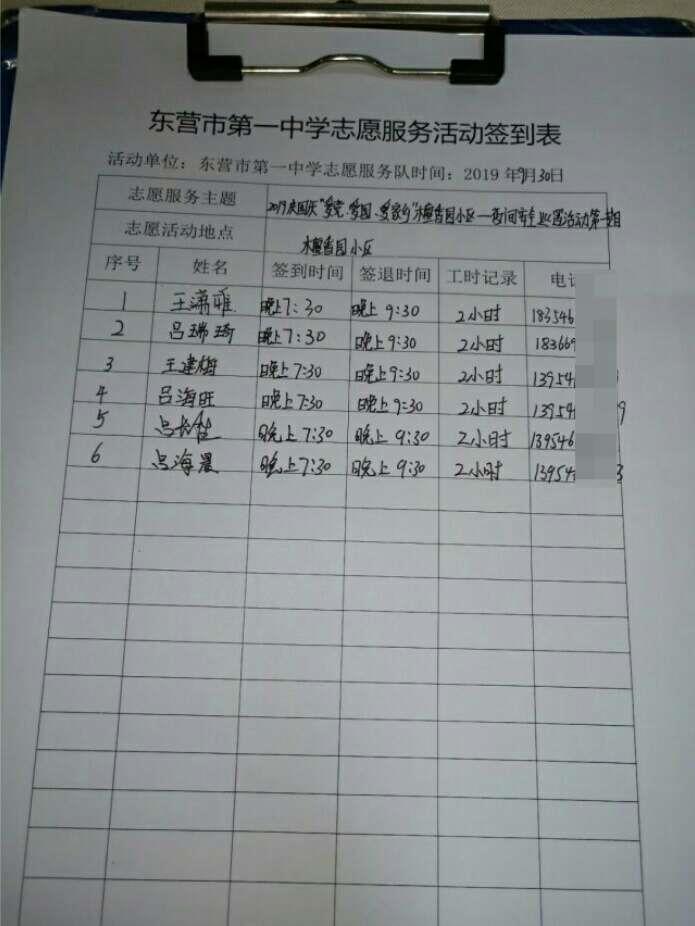 东营市第一中学志愿服务活动签到表
活动单位：东营市第一中学志愿服务队时间：2019年9月30日
志愿服务主题 2019庆国庆“爱党、爱国、爱家乡”木槿香园小区一夜间专业巡逻活动第一组
志愿活动地点 木槿香园小区
序号 姓名 签到时间 签退时间 工时记录 电
1 王潇唯 晚上7:30 晚上9:30 2小时 183546
2 吕瑞琦 晚上7:30 晚上9:30 2小时 183669
3 王建梅 晚上7:30 晚上9:30 2小时 13954
4 吕海旺 晚上7:30 晚上9:30 2小时 13954 9
5 吕 晚上7:30 晚上9:30 2小时 139546
6 吕海晨 晚上7:30 晚上9:30 2小时 13954 3